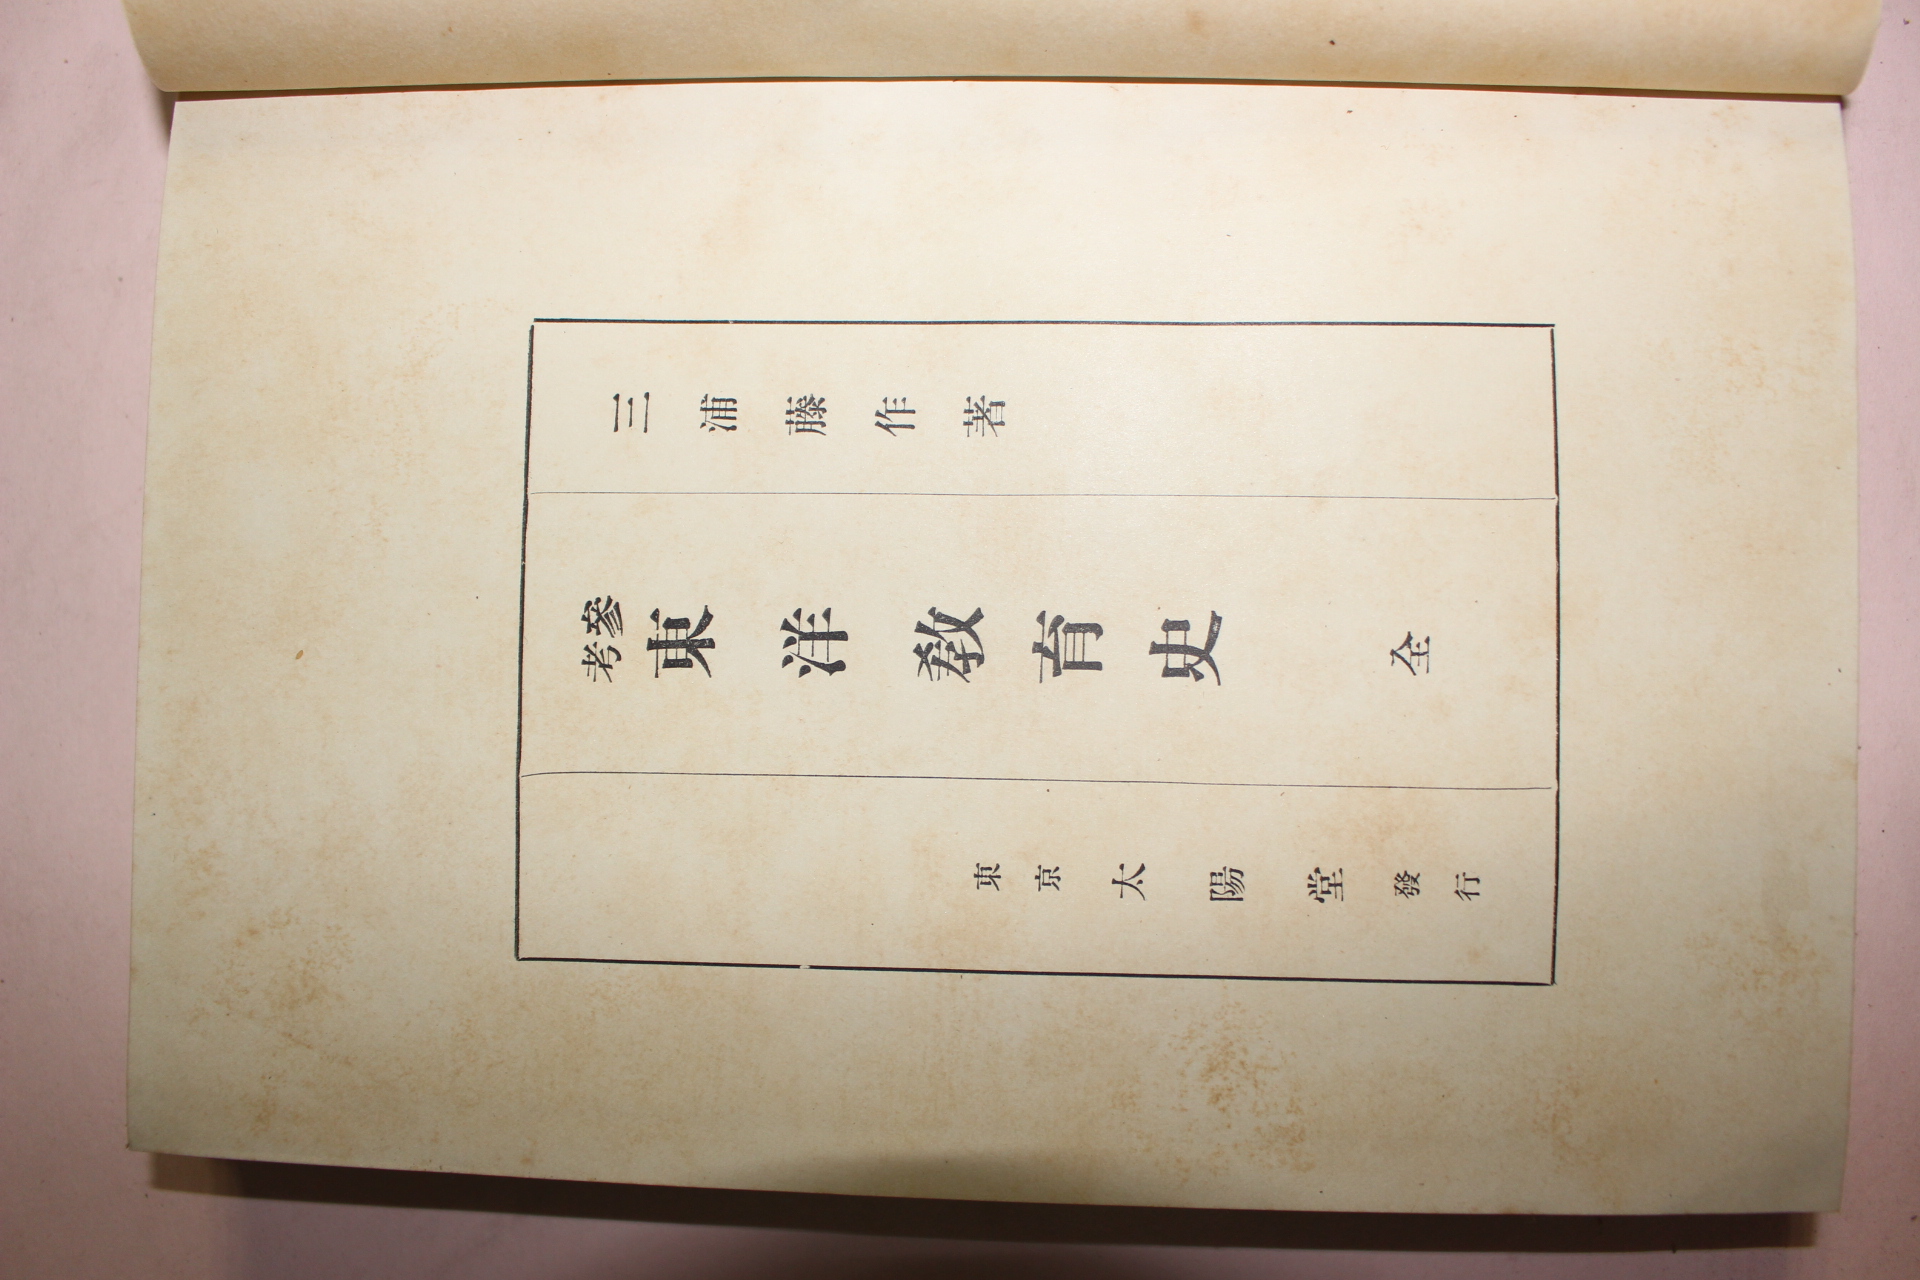 三浦藤作著
參考 東洋敎育史 全
東京 太陽堂 發行